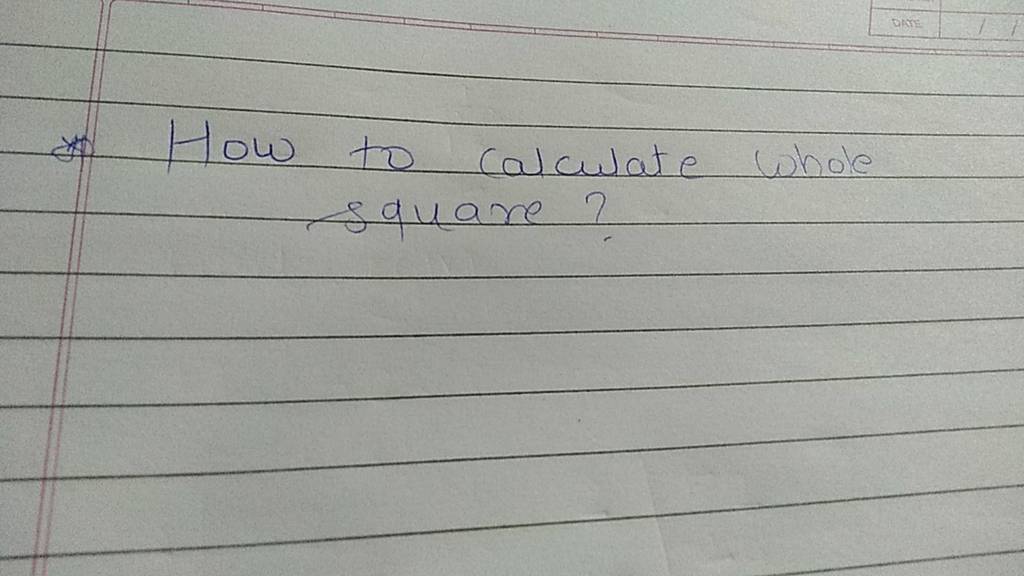 DATE / /
* How to calculate whole
square ?